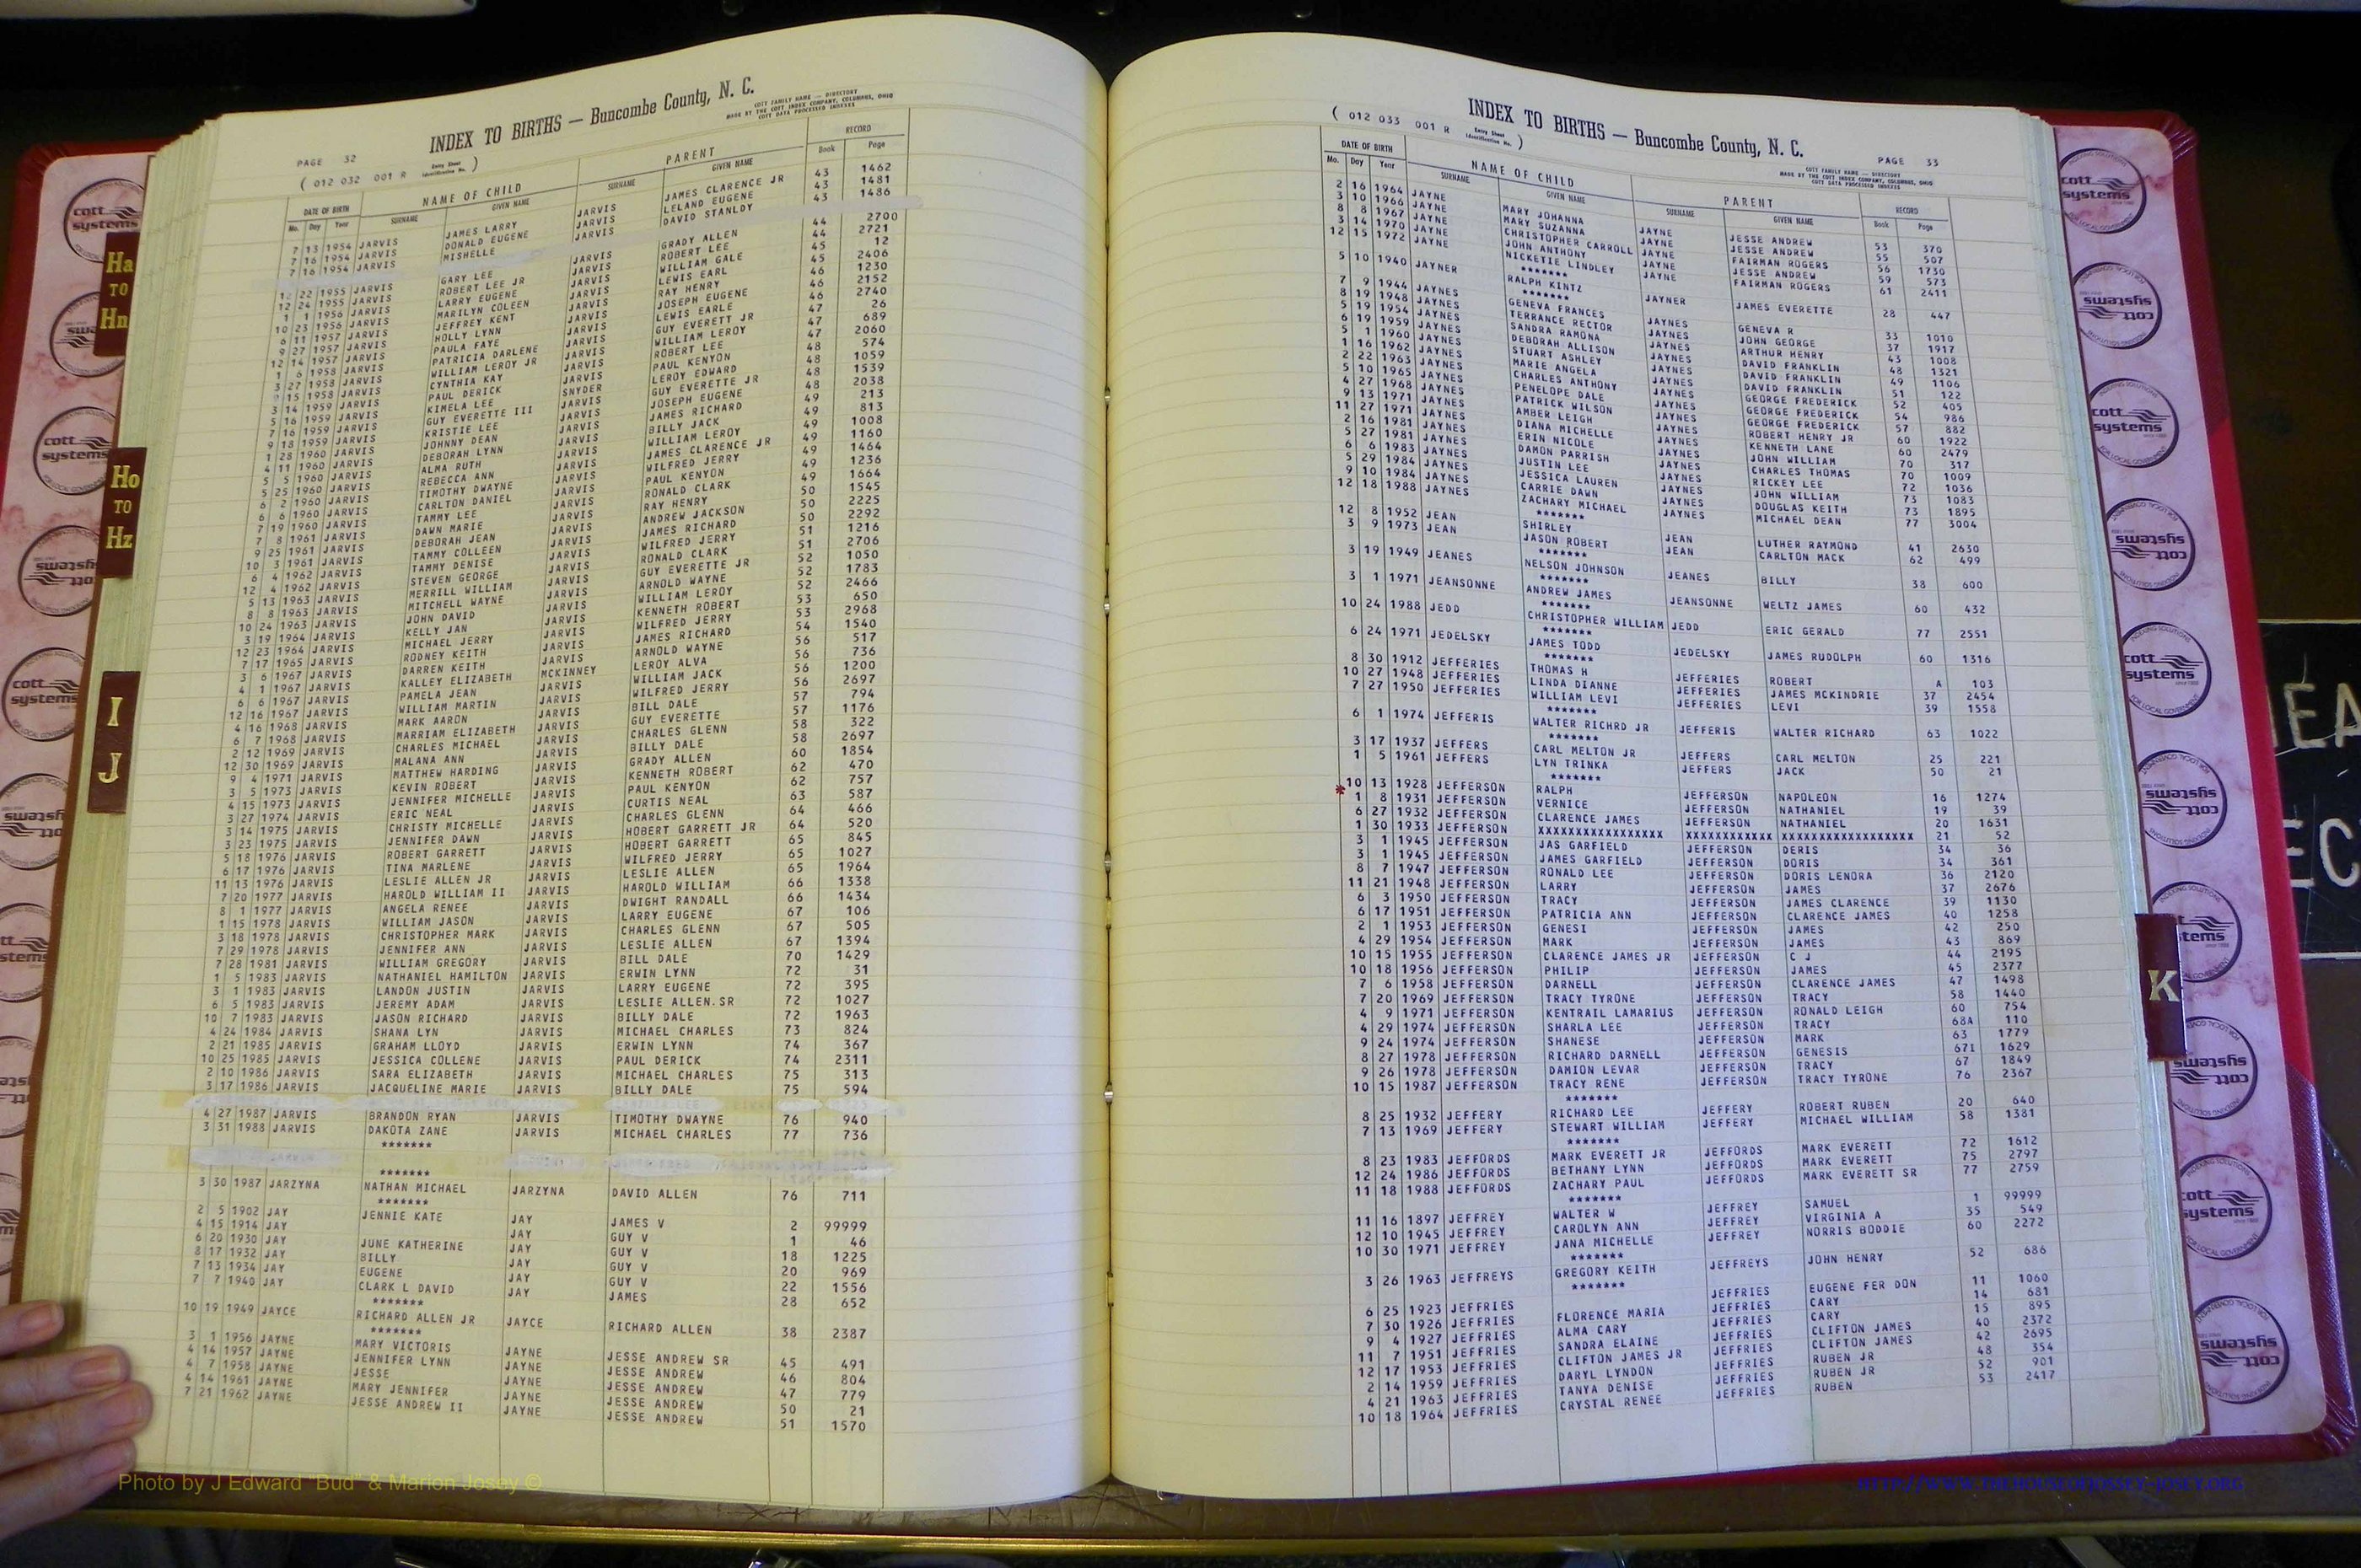 INDEX TO BIRTHS — Buncombe County, N. C.
COTT FAMILY NAME — DIRECTORY
MADE BY THE COTT INDEX COMPANY, COLUMBUS, OHIO
COTT DATA PROCESSED INDEXES
PAGE 32
( 012 032 001 R Entry Sheet Identification No. )
DATE OF BIRTH NAME OF CHILD PARENT RECORD
Mo. Day Year SURNAME GIVEN NAME SURNAME GIVEN NAME Book Page
7 13 1954 JARVIS JAMES LARRY JARVIS JAMES CLARENCE JR 43 1462
7 16 1954 JARVIS DONALD EUGENE JARVIS LELAND EUGENE 43 1481
7 16 1954 JARVIS MISHELLE JARVIS DAVID STANLDY 43 1486
12 22 1955 JARVIS GARY LEE JARVIS GRADY ALLEN 44 2700
12 24 1955 JARVIS ROBERT LEE JR JARVIS ROBERT LEE 44 2721
1 1 1956 JARVIS LARRY EUGENE JARVIS WILLIAM GALE 45 12
10 23 1956 JARVIS MARILYN COLEEN JARVIS LEWIS EARL 45 2406
6 11 1957 JARVIS JEFFREY KENT JARVIS RAY HENRY 46 1230
9 27 1957 JARVIS HOLLY LYNN JARVIS JOSEPH EUGENE 46 2152
12 14 1957 JARVIS PAULA FAYE JARVIS LEWIS EARLE 46 2740
1 6 1958 JARVIS PATRICIA DARLENE JARVIS GUY EVERETT JR 47 26
3 27 1958 JARVIS WILLIAM LEROY JR JARVIS WILLIAM LEROY 47 689
9 15 1958 JARVIS CYNTHIA KAY JARVIS ROBERT LEE 47 2060
3 14 1959 JARVIS PAUL DERICK JARVIS PAUL KENYON 48 574
5 16 1959 JARVIS KIMELA LEE SNYDER LEROY EDWARD 48 1059
7 16 1959 JARVIS GUY EVERETTE III JARVIS GUY EVERETTE JR 48 1539
9 18 1959 JARVIS KRISTIE LEE JARVIS JOSEPH EUGENE 48 2038
1 28 1960 JARVIS JOHNNY DEAN JARVIS JAMES RICHARD 49 213
4 11 1960 JARVIS DEBORAH LYNN JARVIS BILLY JACK 49 813
5 5 1960 JARVIS ALMA RUTH JARVIS WILLIAM LEROY 49 1008
5 25 1960 JARVIS REBECCA ANN JARVIS JAMES CLARENCE JR 49 1160
6 2 1960 JARVIS TIMOTHY DWAYNE JARVIS WILFRED JERRY 49 1464
6 6 1960 JARVIS CARLTON DANIEL JARVIS PAUL KENYON 49 1236
7 19 1960 JARVIS TAMMY LEE JARVIS RONALD CLARK 49 1664
7 8 1961 JARVIS DAWN MARIE JARVIS RAY HENRY 50 1545
9 25 1961 JARVIS DEBORAH JEAN JARVIS ANDREW JACKSON 50 2225
10 3 1961 JARVIS TAMMY COLLEEN JARVIS JAMES RICHARD 50 2292
6 4 1962 JARVIS TAMMY DENISE JARVIS WILFRED JERRY 51 1216
12 4 1962 JARVIS STEVEN GEORGE JARVIS RONALD CLARK 51 2706
5 13 1963 JARVIS MERRILL WILLIAM JARVIS GUY EVERETTE JR 52 1050
8 8 1963 JARVIS MITCHELL WAYNE JARVIS ARNOLD WAYNE 52 1783
10 24 1963 JARVIS JOHN DAVID JARVIS WILLIAM LEROY 52 2466
3 19 1964 JARVIS KELLY JAN JARVIS KENNETH ROBERT 53 650
12 23 1964 JARVIS MICHAEL JERRY JARVIS WILFRED JERRY 53 2968
7 17 1965 JARVIS RODNEY KEITH JARVIS JAMES RICHARD 54 1540
3 6 1967 JARVIS DARREN KEITH JARVIS ARNOLD WAYNE 56 517
4 1 1967 JARVIS KALLEY ELIZABETH MCKINNEY LEROY ALVA 56 736
6 6 1967 JARVIS PAMELA JEAN JARVIS WILLIAM JACK 56 1200
12 16 1967 JARVIS WILLIAM MARTIN JARVIS WILFRED JERRY 56 2697
4 16 1968 JARVIS MARK AARON JARVIS BILL DALE 57 794
6 7 1968 JARVIS MARRIAM ELIZABETH JARVIS GUY EVERETTE 57 1176
2 12 1969 JARVIS CHARLES MICHAEL JARVIS CHARLES GLENN 58 322
12 30 1969 JARVIS MALANA ANN JARVIS BILLY DALE 58 2697
9 4 1971 JARVIS MATTHEW HARDING JARVIS GRADY ALLEN 60 1854
3 5 1973 JARVIS KEVIN ROBERT JARVIS KENNETH ROBERT 62 470
4 15 1973 JARVIS JENNIFER MICHELLE JARVIS PAUL KENYON 62 757
3 27 1974 JARVIS ERIC NEAL JARVIS CURTIS NEAL 63 587
3 14 1975 JARVIS CHRISTY MICHELLE JARVIS CHARLES GLENN 64 466
3 23 1975 JARVIS JENNIFER DAWN JARVIS HOBERT GARRETT JR 64 520
5 18 1976 JARVIS ROBERT GARRETT JARVIS HOBERT GARRETT 65 845
6 17 1976 JARVIS TINA MARLENE JARVIS WILFRED JERRY 65 1027
11 13 1976 JARVIS LESLIE ALLEN JR JARVIS LESLIE ALLEN 65 1964
7 20 1977 JARVIS HAROLD WILLIAM II JARVIS HAROLD WILLIAM 66 1338
8 1 1977 JARVIS ANGELA RENEE JARVIS DWIGHT RANDALL 66 1434
1 15 1978 JARVIS WILLIAM JASON JARVIS LARRY EUGENE 67 106
3 18 1978 JARVIS CHRISTOPHER MARK JARVIS CHARLES GLENN 67 505
7 29 1978 JARVIS JENNIFER ANN JARVIS LESLIE ALLEN 67 1394
7 28 1981 JARVIS WILLIAM GREGORY JARVIS BILL DALE 70 1429
1 5 1983 JARVIS NATHANIEL HAMILTON JARVIS ERWIN LYNN 72 31
3 1 1983 JARVIS LANDON JUSTIN JARVIS LARRY EUGENE 72 395
6 5 1983 JARVIS JEREMY ADAM JARVIS LESLIE ALLEN SR 72 1027
10 7 1983 JARVIS JASON RICHARD JARVIS BILLY DALE 72 1963
4 24 1984 JARVIS SHANA LYN JARVIS MICHAEL CHARLES 73 824
2 21 1985 JARVIS GRAHAM LLOYD JARVIS ERWIN LYNN 74 367
10 25 1985 JARVIS JESSICA COLLENE JARVIS PAUL DERICK 74 2311
2 10 1986 JARVIS SARA ELIZABETH JARVIS MICHAEL CHARLES 75 313
3 17 1986 JARVIS JACQUELINE MARIE JARVIS BILLY DALE 75 594
4 27 1987 JARVIS BRANDON RYAN JARVIS TIMOTHY DWAYNE 76 940
3 31 1988 JARVIS DAKOTA ZANE JARVIS MICHAEL CHARLES 77 736
*******
*******
3 30 1987 JARZYNA NATHAN MICHAEL JARZYNA DAVID ALLEN 76 711
*******
2 5 1902 JAY JENNIE KATE JAY JAMES V 2 99999
4 15 1914 JAY JAY GUY V 1 46
6 20 1930 JAY JUNE KATHERINE JAY GUY V 18 1225
8 17 1932 JAY BILLY JAY GUY V 20 969
7 13 1934 JAY EUGENE JAY GUY V 22 1556
7 7 1940 JAY CLARK L DAVID JAY JAMES 28 652
*******
10 19 1949 JAYCE RICHARD ALLEN JR JAYCE RICHARD ALLEN 38 2387
*******
3 1 1956 JAYNE MARY VICTORIS JAYNE JESSE ANDREW SR 45 491
4 14 1957 JAYNE JENNIFER LYNN JAYNE JESSE ANDREW 46 804
4 7 1958 JAYNE JESSE JAYNE JESSE ANDREW 47 779
4 14 1961 JAYNE MARY JENNIFER JAYNE JESSE ANDREW 50 21
7 21 1962 JAYNE JESSE ANDREW II JAYNE JESSE ANDREW 51 1570
INDEX TO BIRTHS — Buncombe County, N. C.
COTT FAMILY NAME — DIRECTORY
MADE BY THE COTT INDEX COMPANY, COLUMBUS, OHIO
COTT DATA PROCESSED INDEXES
PAGE 33
( 012 033 001 R Entry Sheet Identification No. )
DATE OF BIRTH NAME OF CHILD PARENT RECORD
Mo. Day Year SURNAME GIVEN NAME SURNAME GIVEN NAME Book Page
2 16 1964 JAYNE MARY JOHANNA JAYNE JESSE ANDREW 53 370
3 10 1966 JAYNE MARY SUZANNA JAYNE JESSE ANDREW 55 507
8 8 1967 JAYNE CHRISTOPHER CARROLL JAYNE FAIRMAN ROGERS 56 1730
3 14 1970 JAYNE JOHN ANTHONY JAYNE JESSE ANDREW 59 573
12 15 1972 JAYNE NICKETIE LINDLEY JAYNE FAIRMAN ROGERS 61 2411
*******
5 10 1940 JAYNER RALPH KINTZ JAYNER JAMES EVERETTE 28 447
*******
7 9 1944 JAYNES GENEVA FRANCES JAYNES GENEVA R 33 1010
8 19 1948 JAYNES TERRANCE RECTOR JAYNES JOHN GEORGE 37 1917
5 19 1954 JAYNES SANDRA RAMONA JAYNES ARTHUR HENRY 43 1008
6 19 1959 JAYNES DEBORAH ALLISON JAYNES DAVID FRANKLIN 48 1321
5 1 1960 JAYNES STUART ASHLEY JAYNES DAVID FRANKLIN 49 1106
1 16 1962 JAYNES MARIE ANGELA JAYNES DAVID FRANKLIN 51 122
2 22 1963 JAYNES CHARLES ANTHONY JAYNES GEORGE FREDERICK 52 405
5 10 1965 JAYNES PENELOPE DALE JAYNES GEORGE FREDERICK 54 986
4 27 1968 JAYNES PATRICK WILSON JAYNES GEORGE FREDERICK 57 882
9 13 1971 JAYNES AMBER LEIGH JAYNES ROBERT HENRY JR 60 1922
11 27 1971 JAYNES DIANA MICHELLE JAYNES KENNETH LANE 60 2479
2 16 1981 JAYNES ERIN NICOLE JAYNES JOHN WILLIAM 70 317
5 27 1981 JAYNES DAMON PARRISH JAYNES CHARLES THOMAS 70 1009
6 6 1983 JAYNES JUSTIN LEE JAYNES RICKEY LEE 72 1036
5 29 1984 JAYNES JESSICA LAUREN JAYNES JOHN WILLIAM 73 1083
9 10 1984 JAYNES CARRIE DAWN JAYNES DOUGLAS KEITH 73 1895
12 18 1988 JAYNES ZACHARY MICHAEL JAYNES MICHAEL DEAN 77 3004
*******
12 8 1952 JEAN SHIRLEY JEAN LUTHER RAYMOND 41 2630
3 9 1973 JEAN JASON ROBERT JEAN CARLTON MACK 62 499
*******
3 19 1949 JEANES NELSON JOHNSON JEANES BILLY 38 600
*******
3 1 1971 JEANSONNE ANDREW JAMES JEANSONNE WELTZ JAMES 60 432
*******
10 24 1988 JEDD CHRISTOPHER WILLIAM JEDD ERIC GERALD 77 2551
*******
6 24 1971 JEDELSKY JAMES TODD JEDELSKY JAMES RUDOLPH 60 1316
*******
8 30 1912 JEFFERIES THOMAS H JEFFERIES ROBERT A 103
10 27 1948 JEFFERIES LINDA DIANNE JEFFERIES JAMES MCKINDRIE 37 2454
7 27 1950 JEFFERIES WILLIAM LEVI JEFFERIES LEVI 39 1558
*******
6 1 1974 JEFFERIS WALTER RICHRD JR JEFFERIS WALTER RICHARD 63 1022
*******
3 17 1937 JEFFERS CARL MELTON JR JEFFERS CARL MELTON 25 221
1 5 1961 JEFFERS LYN TRINKA JEFFERS JACK 50 21
*******
10 13 1928 JEFFERSON RALPH JEFFERSON NAPOLEON 16 1274
* 1 8 1931 JEFFERSON VERNICE JEFFERSON NATHANIEL 19 39
6 27 1932 JEFFERSON CLARENCE JAMES JEFFERSON NATHANIEL 20 1631
1 30 1933 JEFFERSON XXXXXXXXXXXXXXXXX XXXXXXXXXXXX XXXXXXXXXXXXXXXXXX 21 52
3 1 1945 JEFFERSON JAS GARFIELD JEFFERSON DERIS 34 36
3 1 1945 JEFFERSON JAMES GARFIELD JEFFERSON DORIS 34 361
8 7 1947 JEFFERSON RONALD LEE JEFFERSON DORIS LENORA 36 2120
11 21 1948 JEFFERSON LARRY JEFFERSON JAMES 37 2676
6 3 1950 JEFFERSON TRACY JEFFERSON JAMES CLARENCE 39 1130
6 17 1951 JEFFERSON PATRICIA ANN JEFFERSON CLARENCE JAMES 40 1258
2 1 1953 JEFFERSON GENESI JEFFERSON JAMES 42 250
4 29 1954 JEFFERSON MARK JEFFERSON JAMES 43 869
10 15 1955 JEFFERSON CLARENCE JAMES JR JEFFERSON C J 44 2195
10 18 1956 JEFFERSON PHILIP JEFFERSON JAMES 45 2377
7 6 1958 JEFFERSON DARNELL JEFFERSON CLARENCE JAMES 47 1498
7 20 1969 JEFFERSON TRACY TYRONE JEFFERSON TRACY 58 1440
4 9 1971 JEFFERSON KENTRAIL LAMARIUS JEFFERSON RONALD LEIGH 60 754
4 29 1974 JEFFERSON SHARLA LEE JEFFERSON TRACY 68A 110
9 24 1974 JEFFERSON SHANESE JEFFERSON MARK 63 1779
8 27 1978 JEFFERSON RICHARD DARNELL JEFFERSON GENESIS 671 1629
9 26 1978 JEFFERSON DAMION LEVAR JEFFERSON TRACY 67 1849
10 15 1987 JEFFERSON TRACY RENE JEFFERSON TRACY TYRONE 76 2367
*******
8 25 1932 JEFFERY RICHARD LEE JEFFERY ROBERT RUBEN 20 640
7 13 1969 JEFFERY STEWART WILLIAM JEFFERY MICHAEL WILLIAM 58 1381
*******
8 23 1983 JEFFORDS MARK EVERETT JR JEFFORDS MARK EVERETT 72 1612
12 24 1986 JEFFORDS BETHANY LYNN JEFFORDS MARK EVERETT 75 2797
11 18 1988 JEFFORDS ZACHARY PAUL JEFFORDS MARK EVERETT SR 77 2759
*******
11 16 1897 JEFFREY WALTER W JEFFREY SAMUEL 1 99999
12 10 1945 JEFFREY CAROLYN ANN JEFFREY VIRGINIA A 35 549
10 30 1971 JEFFREY JANA MICHELLE JEFFREY NORRIS BODDIE 60 2272
*******
3 26 1963 JEFFREYS GREGORY KEITH JEFFREYS JOHN HENRY 52 686
*******
6 25 1923 JEFFRIES JEFFRIES EUGENE FER DON 11 1060
7 30 1926 JEFFRIES FLORENCE MARIA JEFFRIES CARY 14 681
9 4 1927 JEFFRIES ALMA CARY JEFFRIES CARY 15 895
11 7 1951 JEFFRIES SANDRA ELAINE JEFFRIES CLIFTON JAMES 40 2372
12 17 1953 JEFFRIES CLIFTON JAMES JR JEFFRIES CLIFTON JAMES 42 2695
2 14 1959 JEFFRIES DARYL LYNDON JEFFRIES RUBEN JR 48 354
4 21 1963 JEFFRIES TANYA DENISE JEFFRIES RUBEN JR 52 901
10 18 1964 JEFFRIES CRYSTAL RENEE JEFFRIES RUBEN 53 2417
Ha TO Hn
Ho TO Hz
I J
K
cott systems
Photo by J Edward "Bud" & Marion Josey ©
HTTP://WWW.THEHOUSEOFJOSSEY-JOSEY.ORG